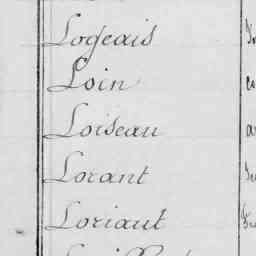 Logeais
Loin
Loiseau
Lorant
Loriaut